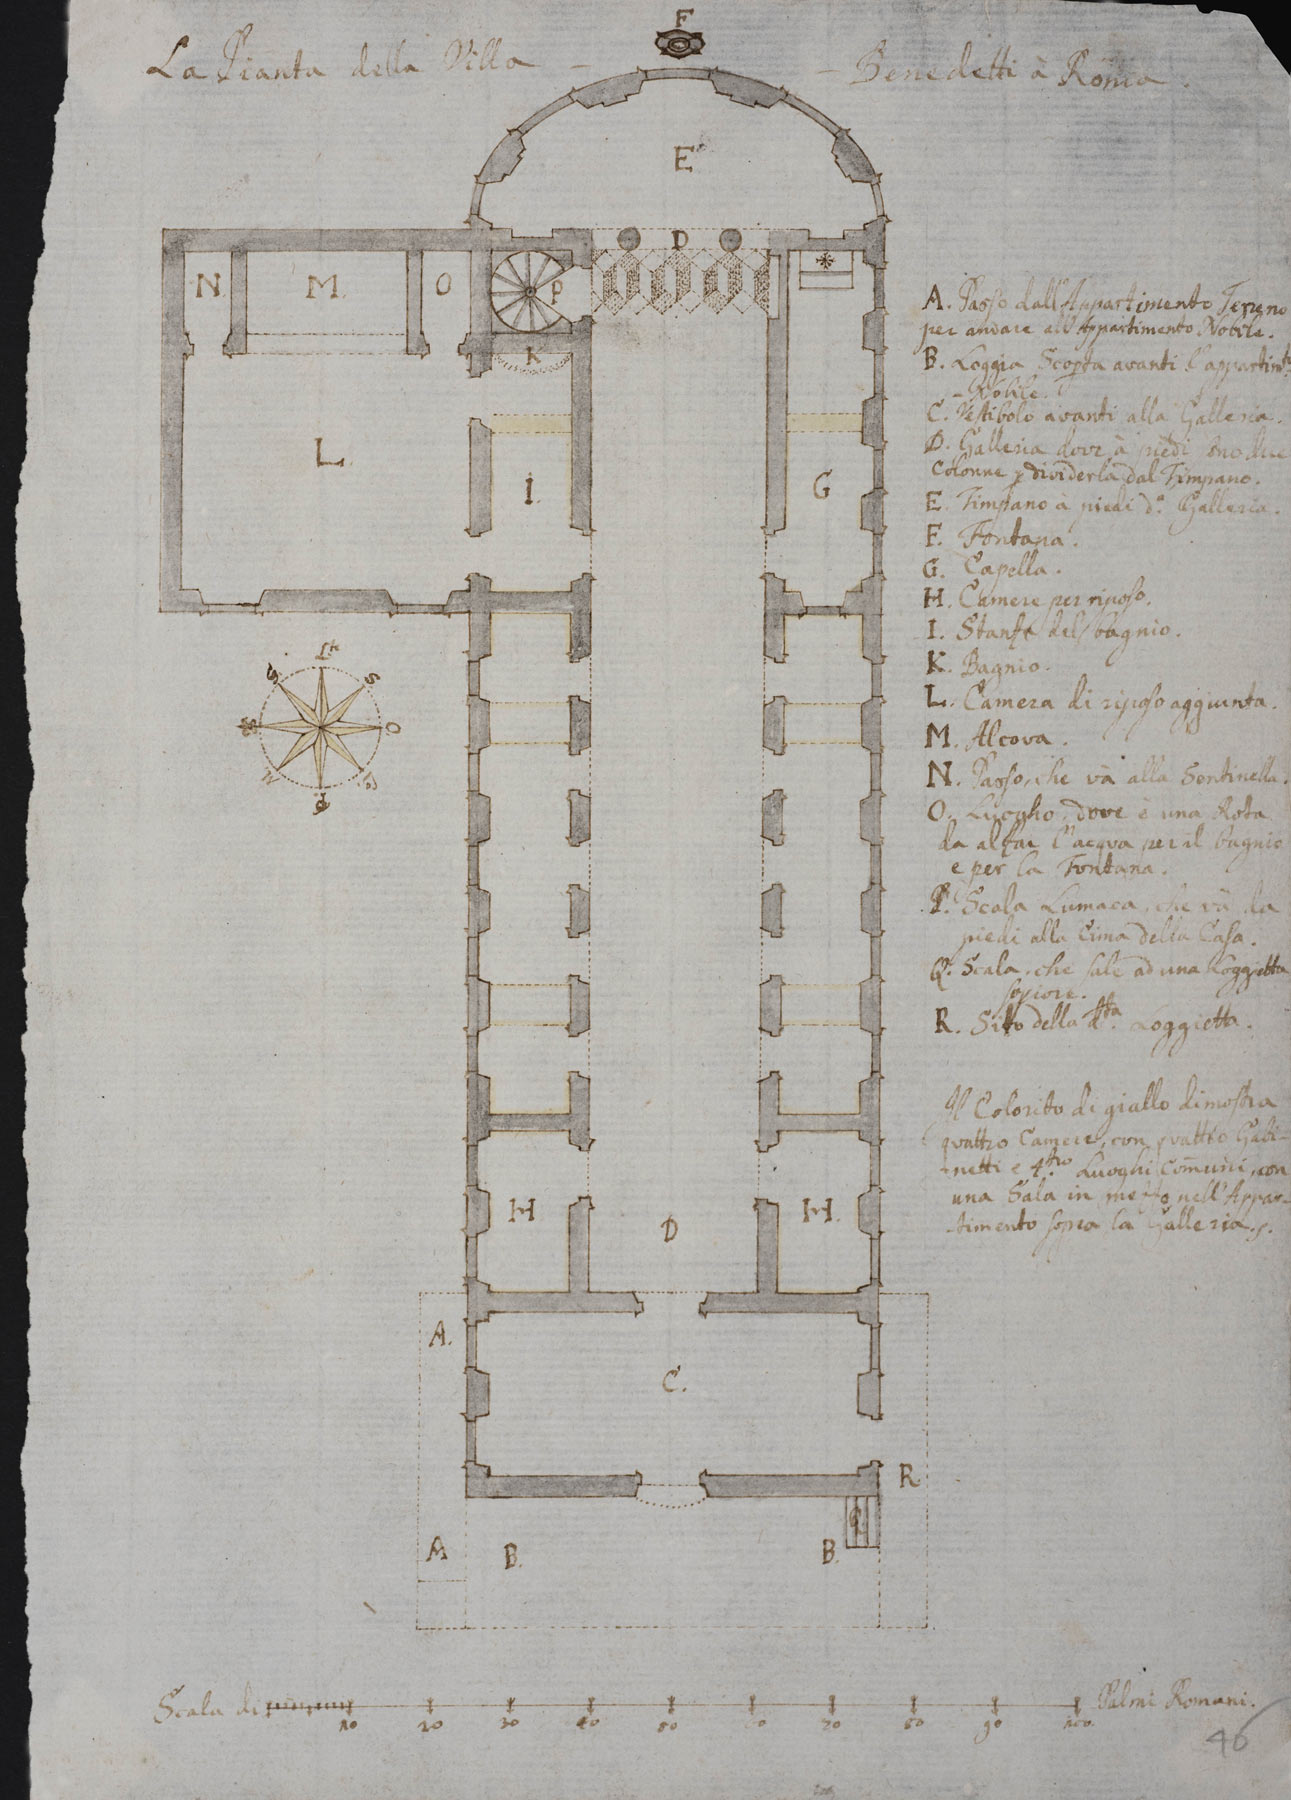 La Pianta della Villa — — Benedetti à Roma.
F
E
D
N.
M.
O
P
K
L.
I.
G
H
H.
D
A.
C.
R
Q
A
B.
B.
A. Passo dall'Appartimento Terreno
per andare all'Appartimento Nobile.
B. Loggia Scop̱ta avanti l'appartim.to
- Nobile.
C. Vestibolo avanti alla Galleria.
D. Galleria dove à piedi sono due
Colonne p̱ dividerla dal Timpano.
E. Timpano à piedi d.a Galleria.
F. Fontana.
G. Capella.
H. Camere per riposo.
I. Stanze del bagnio.
K. Bagnio.
L. Camera di riposo aggiunta.
M. Alcova.
N. Passo, che và alla Sentinella.
O. Luogho, dove è una Rota
da alzar l'acqua per il bagnio
e per la Fontana.
P. Scala Lumaca, che và da
piedi alla Cima della Casa.
Q. Scala, che sale ad una Loggietta
sopiore.
R. Sito della d.tta Loggietta.
Il Colorito di giallo dimostra
quattro Camere, con quattro Gabi-
-netti e 4.tro Luoghi Com̄uni, con
una Sala in mezzo nell'Appar-
-timento sopra la Galleria.
Scala di Palmi Romani.
10 20 30 40 50 60 70 80 90 100
46